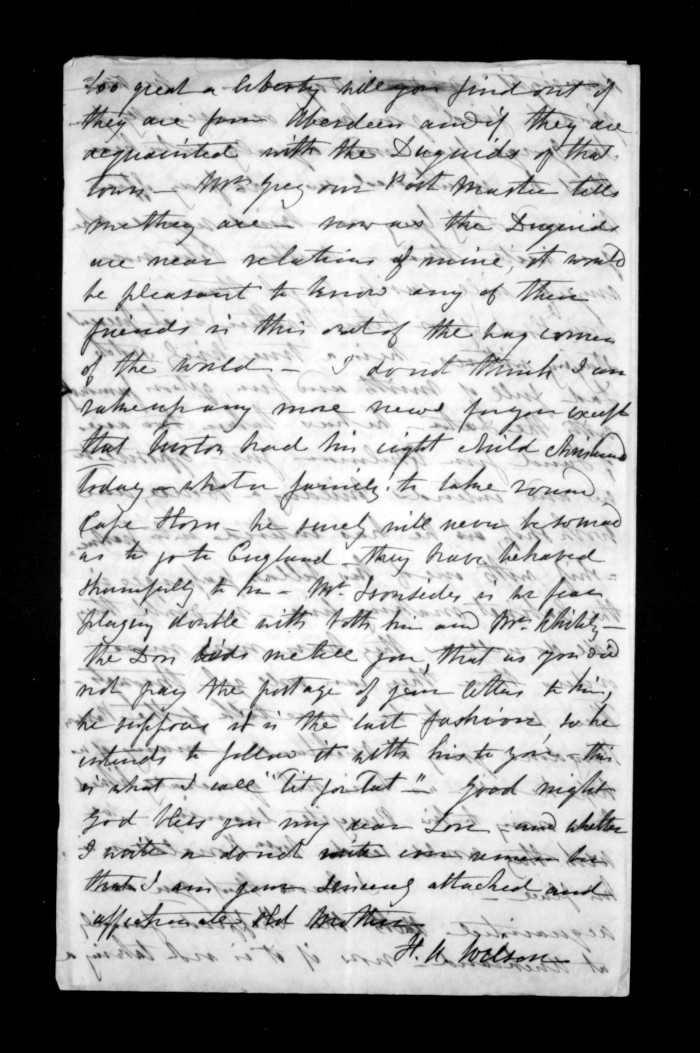 too great a liberty will you find out if
they are from Aberdeen and if they are
acquainted with the Duguids of that
town — Mr Grey our Post Master tells
me they are — now as the Duguids
are near relations of mine, it would
be pleasant to know any of their
friends in this out of the way corner
of the world — I do not think I can
rake up any more news for you except
that had his eight child Christened
Today — what a family. to take round
Cape Horn — he surely will never be so mad
as to go to England — they have behaved
shamefully to — Mr. Ironsides is we fear
playing double with both him and Mr.
the Don bids me tell you, that as you did
not pay the postage of your letter to him,
he supposes it is the last fashion, so he
intends to follow it with his to you — this
is what I call "tit for tat —" Good night
God bless you my dear Son and whether
I write or do not write remember
that I am your sincerely attached and
affectionate old Mother
H. A. Wilson